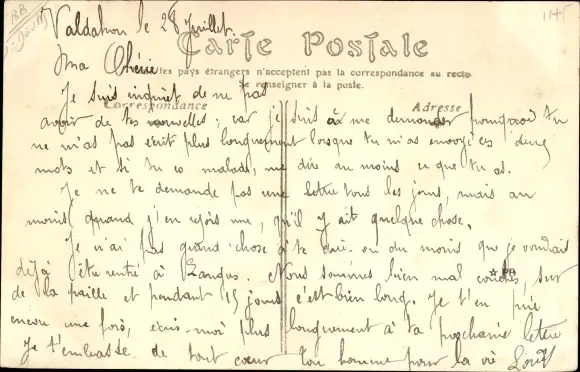 Valdahon le 28 Juillet.
Carte Postale
Ma Chérie
tes pays étrangers n'acceptent pas la correspondance au recto
Se renseigner à la poste.
Je suis inquiet de ne pas
Correspondance
Adresse
avoir de tes nouvelles ; car je suis à me demander pourquoi tu
ne m'as pas écrit plus longuement lorsque tu m'as envoyé ces deux
mots et si tu es malade, me dire au moins ce que tu as.
Je ne te demande pas une lettre tous les jours, mais au
moins quand j'en reçois une, qu'il y ait quelque chose.
Je n'ai pas grand chose à te dire ou du moins que je voudrais
déjà être rentré à Langres. Nous sommes bien mal couchés, sur
de la paille et pendant 15 jours c'est bien long. Je t'en prie
encore une fois, écris-moi plus longuement à ta prochaine lettre
Je t'embrasse de tout coeur Ton homme pour la vie